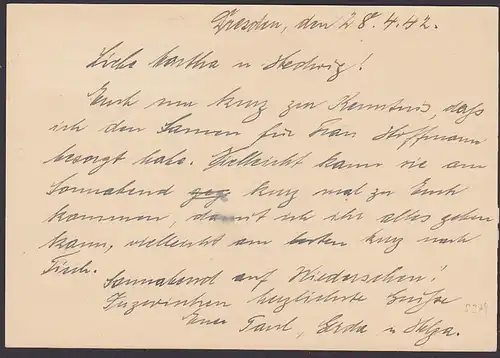 Dresden, den 28.4.42.
Liebe Martha u Hedwig!
Euch nur kurz zur Kenntnis, daß
ich den Samen für Frau Hoffmann
besorgt habe. Vielleicht kann sie am
Sonnabend geg kurz mal zu Euch
kommen, damit ich ihr alles geben
kann, vielleicht am besten kurz nach
Tisch.
Sonnabend auf Wiedersehen!
Inzwischen herzlichste Grüße
Euer Paul, Gerda u Helga.